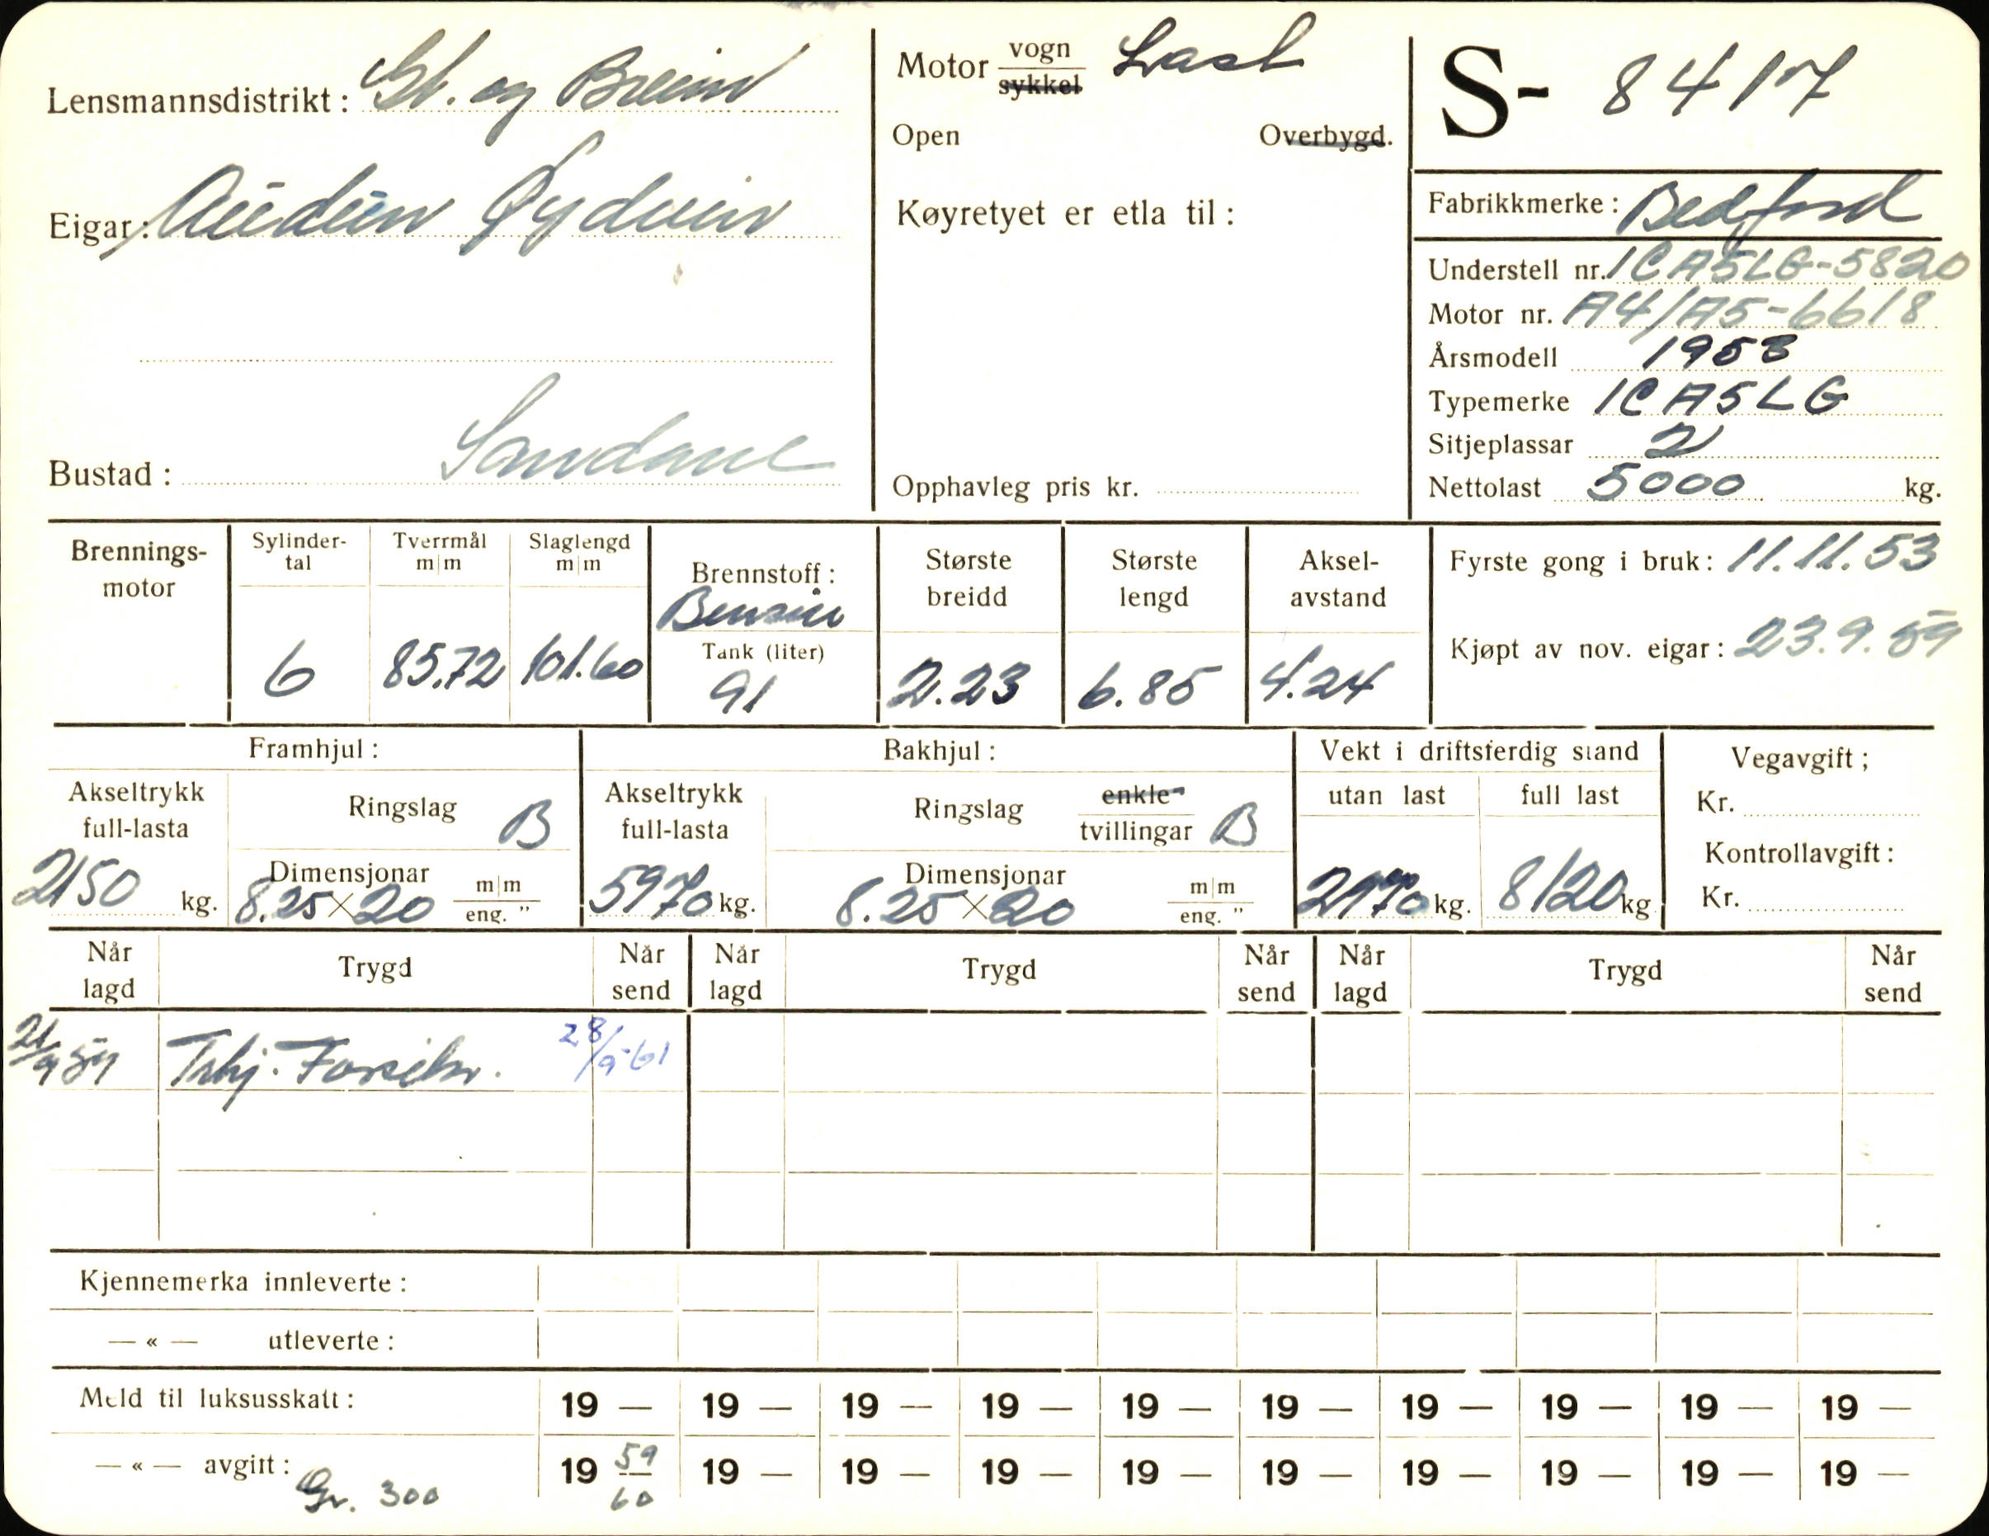 Lensmannsdistrikt: Gl. og Breim
Eigar: Audun Øydvin
Bustad: Sandane
Motor vogn Last
sykkel
Open Overbygd.
Køyretyet er etla til:
Opphavleg pris kr.
S- 8417
Fabrikkmerke: Bedford
Understell nr. ICA5LG-5820
Motor nr. A4/A5-6618
Årsmodell 1953
Typemerke ICA5LG
Sitjeplassar 2
Nettolast 5000 kg.
Brennings-
motor
Sylinder-
tal
6
Tverrmål
m|m
85,72
Slaglengd
m|m
101.60
Brennstoff:
Bensin
Tank (liter)
91
Største
breidd
2.23
Største
lengd
6.85
Aksel-
avstand
4.24
Fyrste gong i bruk: 11.11.53
Kjøpt av nov. eigar: 23.9.59
Framhjul:
Akseltrykk
full-lasta
2150 kg.
Ringslag B
Dimensjonar m|m
8.25 × 20 eng. "
Bakhjul:
Akseltrykk
full-lasta
5970 kg.
Ringslag enkle- B
tvillingar
Dimensjonar m|m
8.25 × 20 eng. "
Vekt i driftsferdig stand
utan last full last
2970 kg. 8120 kg
Vegavgift;
Kr.
Kontrollavgift:
Kr.
Når lagd Trygd Når send Når lagd Trygd Når send Når lagd Trygd Når send
21/9 59 Trhj. Forsikr. 28/9-61
Kjennemerka innleverte:
— « — utleverte:
Meld til luksusskatt: 19 — 19 — 19 — 19 — 19 — 19 — 19 — 19 — 19 — 19 —
— « — avgift: 19 59 — 60 19 — 19 — 19 — 19 — 19 — 19 — 19 — 19 — 19 —
Gr. 300